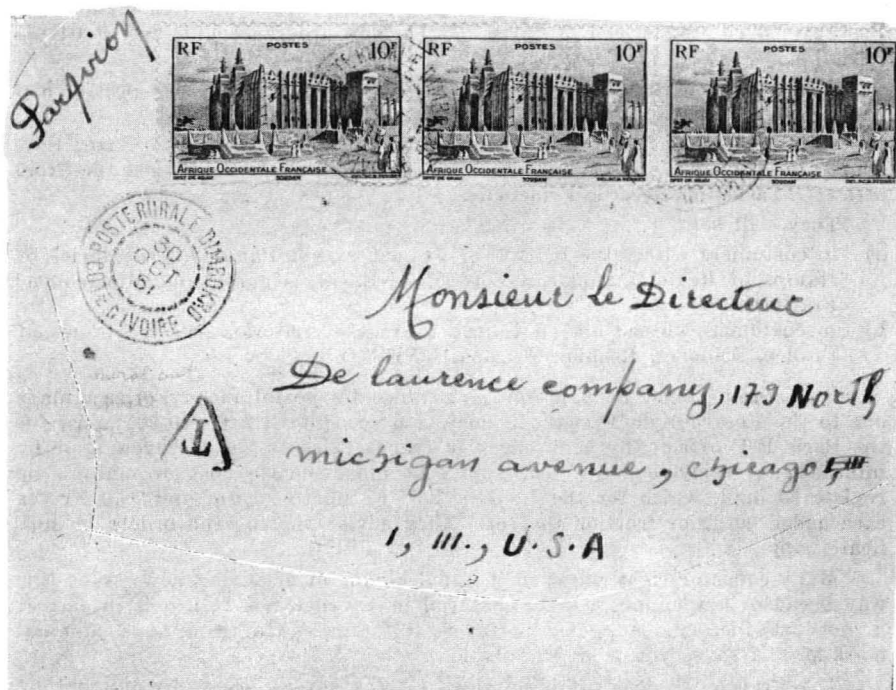 Par avion
RF POSTES 10F
AFRIQUE OCCIDENTALE FRANÇAISE
SOUDAN
RF POSTES 10F
AFRIQUE OCCIDENTALE FRANÇAISE
SOUDAN
RF POSTES 10F
AFRIQUE OCCIDENTALE FRANÇAISE
SOUDAN
POSTE RURALE DIMBOKRO
30
OCT
51
COTE D'IVOIRE
Monsieur le Directeur
De laurence company, 179 North
michigan avenue, chicago
T
1, Ill., U.S.A